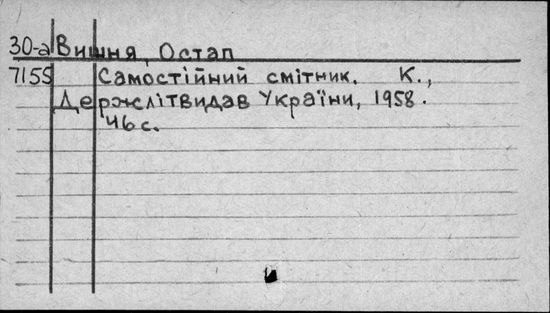 30-а Вишня, Остап
7155 Самостійний смітник. К.,
Держлітвидав України, 1958.
46 с.